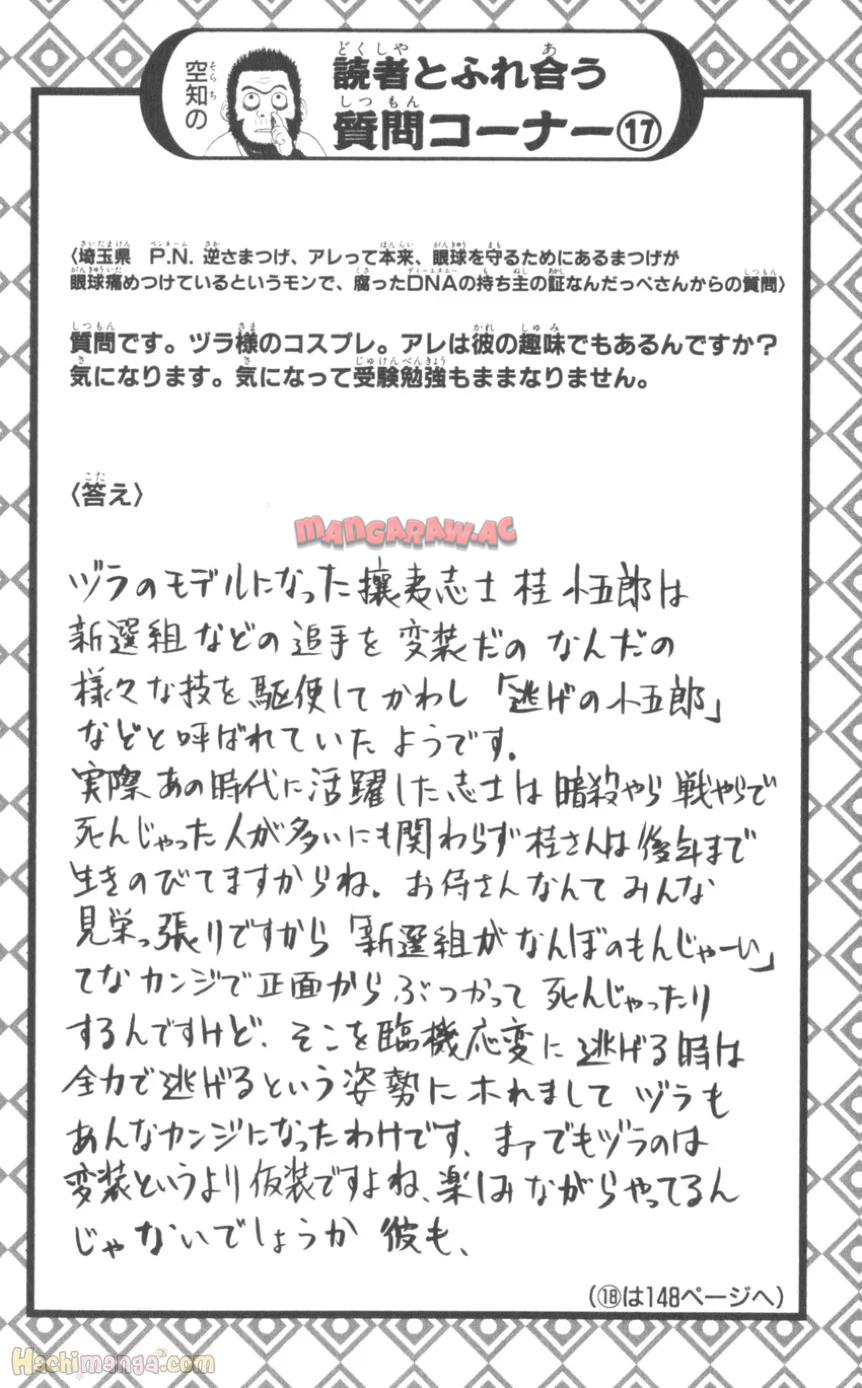 空知の
読者とふれ合う
質問コーナー⑰
〈埼玉県 P.N. 逆さまつげ、アレって本来、眼球を守るためにあるまつげが
眼球痛めつけているというモンで、腐ったDNAの持ち主の証なんだっぺさんからの質問〉
質問です。ヅラ様のコスプレ。アレは彼の趣味でもあるんですか？
気になります。気になって受験勉強もままなりません。
〈答え〉
MANGARAW.AC
ヅラのモデルになった攘夷志士 桂 小五郎は
新選組などの追手を 変装だの なんだの
様々な技を駆使して かわし 「逃げの小五郎」
などと呼ばれていた ようです。
実際 あの時代に活躍した志士は 暗殺やら 戦やらで
死んじゃった人が多いにも関わらず 桂さんは後年まで
生きのびてますからね。お侍さんなんて みんな
見栄っ張りですから「新選組がなんぼのもんじゃーい」
てなカンジで正面から ぶつかって 死んじゃったり
するんですけど、そこを臨機応変に逃げる時は
全力で逃げるという姿勢にホれまして ヅラも
あんなカンジになったわけです、まァでもヅラのは
変装というより仮装ですよね、楽しみながらやってるん
じゃないでしょうか 彼も、
（⑱は148ページへ）
Hachimanga.com